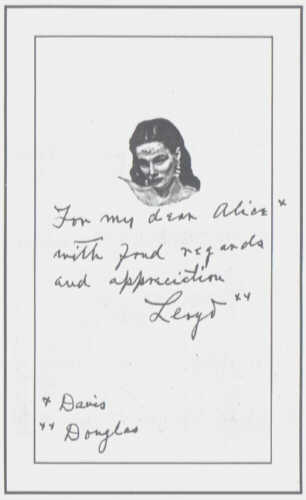 For my dear Alice *
with fond regards
and appreciation
Lloyd **
* Davis
** Douglas